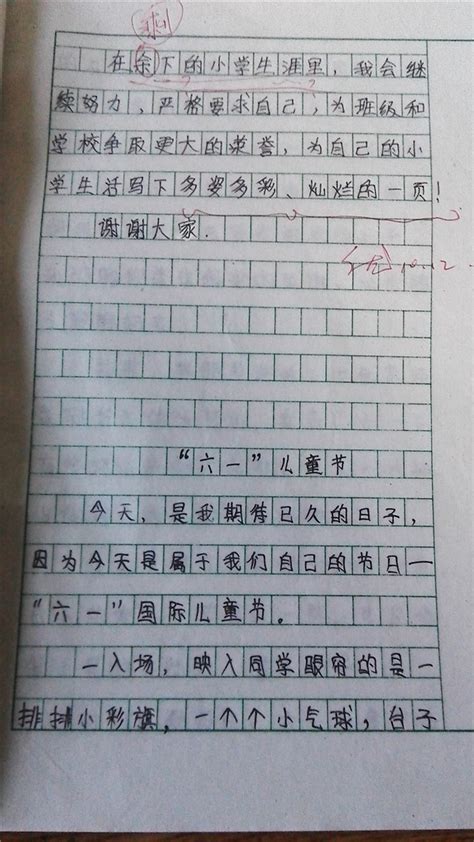 剩
在余下的小学生涯里，我会继
续努力，严格要求自己，为班级和
学校争取更大的荣誉，为自己的小
学生活写下多姿多彩、灿烂的一页！
谢谢大家.
10.12.
“六一”儿童节
今天，是我期待已久的日子，
因为今天是属于我们自己的节日一
“六一”国际儿童节。
一入场，映入同学眼帘的是一
排排小彩旗，一个个小气球，台子